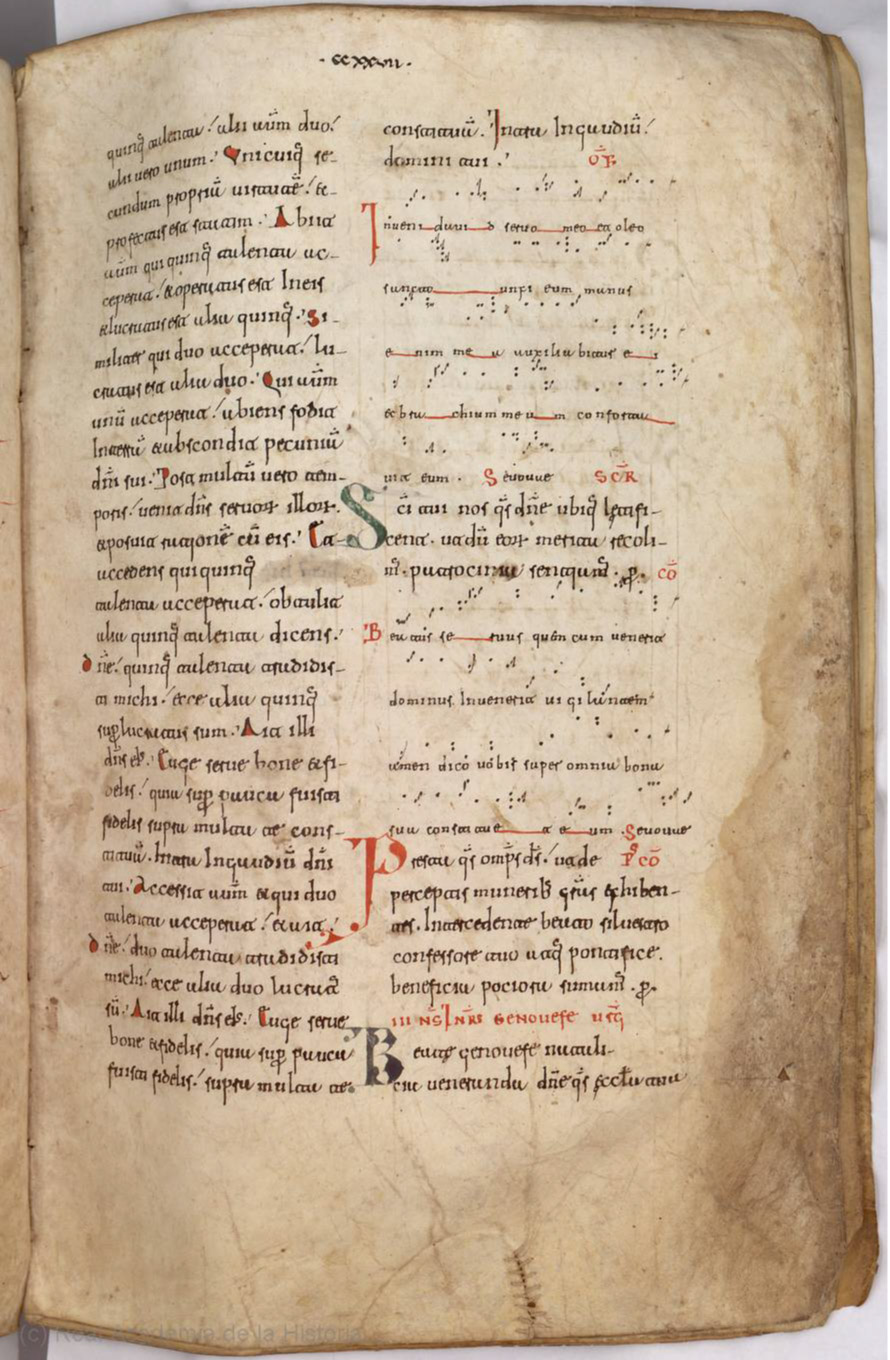 · ccxxvii ·
quinq̄ talenta / alii uū duo /
alii uero unum · Unicuiq̄ se-
cundum propriū uirtutē / &
profectus est statim · Abiit
autem qui quinq̄ talenta ac-
ceperat / & operatus est Ineis
& lucratus est alia quinq̄ · Si-
militer qui duo acceperat / lu-
cratus est alia duo · Qui aūm
unū acceperat / abiens fodit
Interrā & abscondit pecuniā
dn̄i sui · Post multū uero tem-
poris / uenit dn̄s seruorꝝ illorꝝ
& posuit rationē cū eis · Et ac-
accedens qui quinq̄
talenta acceperat / obtulit
alia quinq̄ talenta dicens /
dn̄e / quinq̄ talenta tradidis-
ti michi / ecce alia quinq̄
suꝑlucratus sum · Ait illi
dn̄s eiꝰ · Euge serue bone & fi-
delis / quia suꝑ pauca fuisti
fidelis supra multa te cons-
tituā · Intra Ingaudiū dn̄i
tui · Accessit aūm & qui duo
talenta acceperat / & ait /
dn̄e / duo talenta tradidisti
michi / ecce alia duo lucratꝰ
sū · Ait illi dn̄s eiꝰ · Euge serue
bone & fidelis / quia suꝑ pauca
fuisti fidelis / supra multa te
constituā · Intra Ingaudiū /
domini tui · OF̄
Inueni dauid seruo meo et oleo
sancto unxi eum manus
enim mea auxiliabitur ei
et brachium meum confortau
uit eum · Seuouae SC̄R
Sc̄i tui nos q̄s dn̄e ubiq̄ letifi-
cent · ut dū eorꝝ merita recoli-
m̄ · patrocinia sentiam̄ · ꝑ · CŌ
Beatus seruus quem cum uenerit
dominus Inuenerit uigilantem
amen dico uobis super omnia bona
sua constituet eum · Seuouae
Presta q̄s omp̄s d̄s / ut de PꝰCŌ
perceptis munerib; gr̄as exhiben-
tes · Intercedente beato siluestro
confessore tuo atq̄ pontifice ·
beneficia pociora sumam̄ · ꝑ ·
III NS̄ INR̄S GENOUEFE UIRḠ
Beate genouefe natali-
cia ueneranda dn̄e q̄s eccl̄a tua